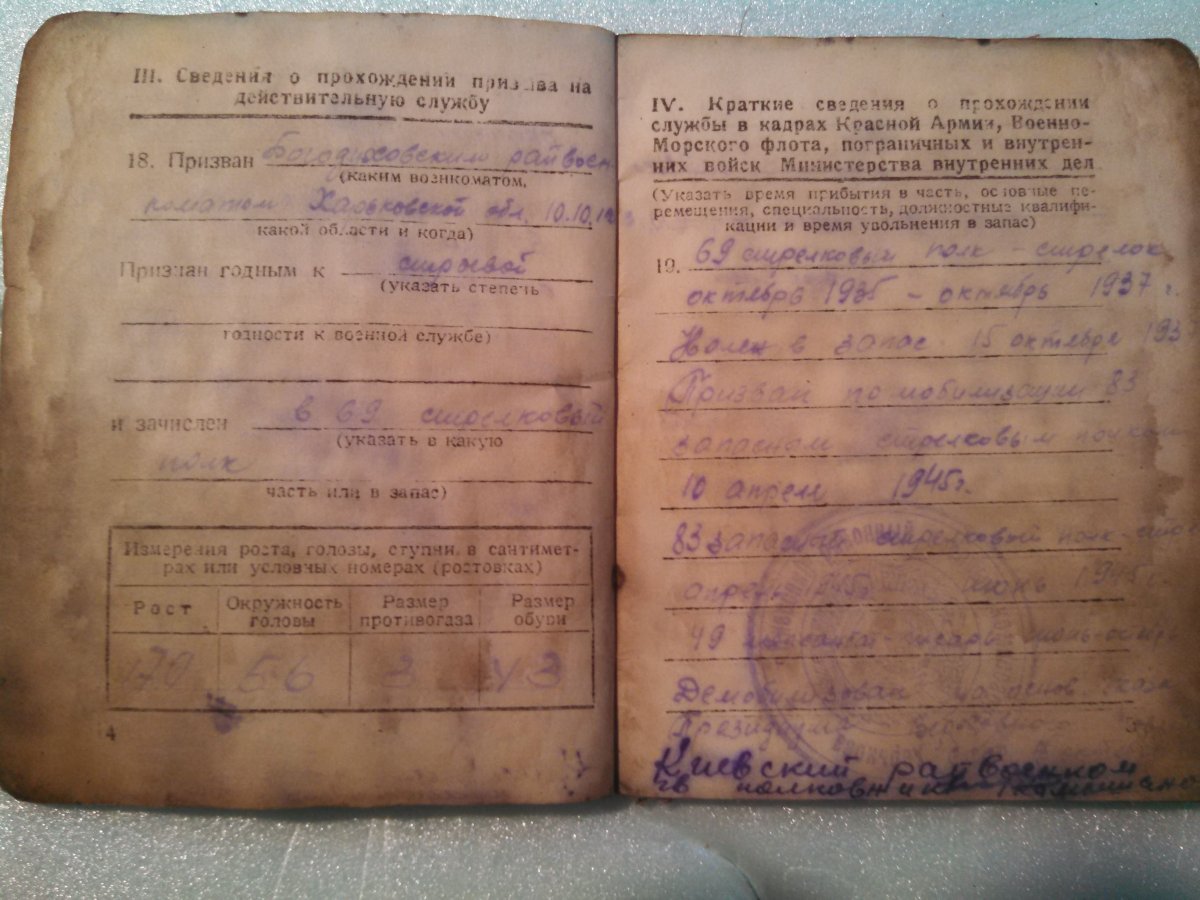 III. Сведения о прохождении призыва на
действительную службу
18. Призван Богодуховским райвоен
(каким военкоматом,
коматом Харьковской обл. 10.10.19
какой области и когда)
Признан годным к строевой
(указать степень
годности к военной службе)
и зачислен в 69 стрелковый
(указать в какую
полк
часть или в запас)
Измерения роста, головы, ступни в сантимет-
рах или условных номерах (ростовках)
Рост Окружность головы Размер противогаза Размер обуви
170 56 3 43
4
IV. Краткие сведения о прохождении
службы в кадрах Красной Армии, Военно-
Морского флота, пограничных и внутрен-
них войск Министерства внутренних дел
(Указать время прибытия в часть, основные пе-
ремещения, специальность, должностные квалифи-
кации и время увольнения в запас)
19. 69 стрелковый полк - стрелок
октябрь 1935 - октябрь 1937 г.
в запас 15 октября 193
Призван по мобилизации 83
запасным стрелковым полком
10 апреля 1945г.
83 запасный стрелковый полк
апрель 1945 июнь 1945 г.
49
Демобилизован на основ.
Президиума Верховного
Киевский райвоенком
гв полковник